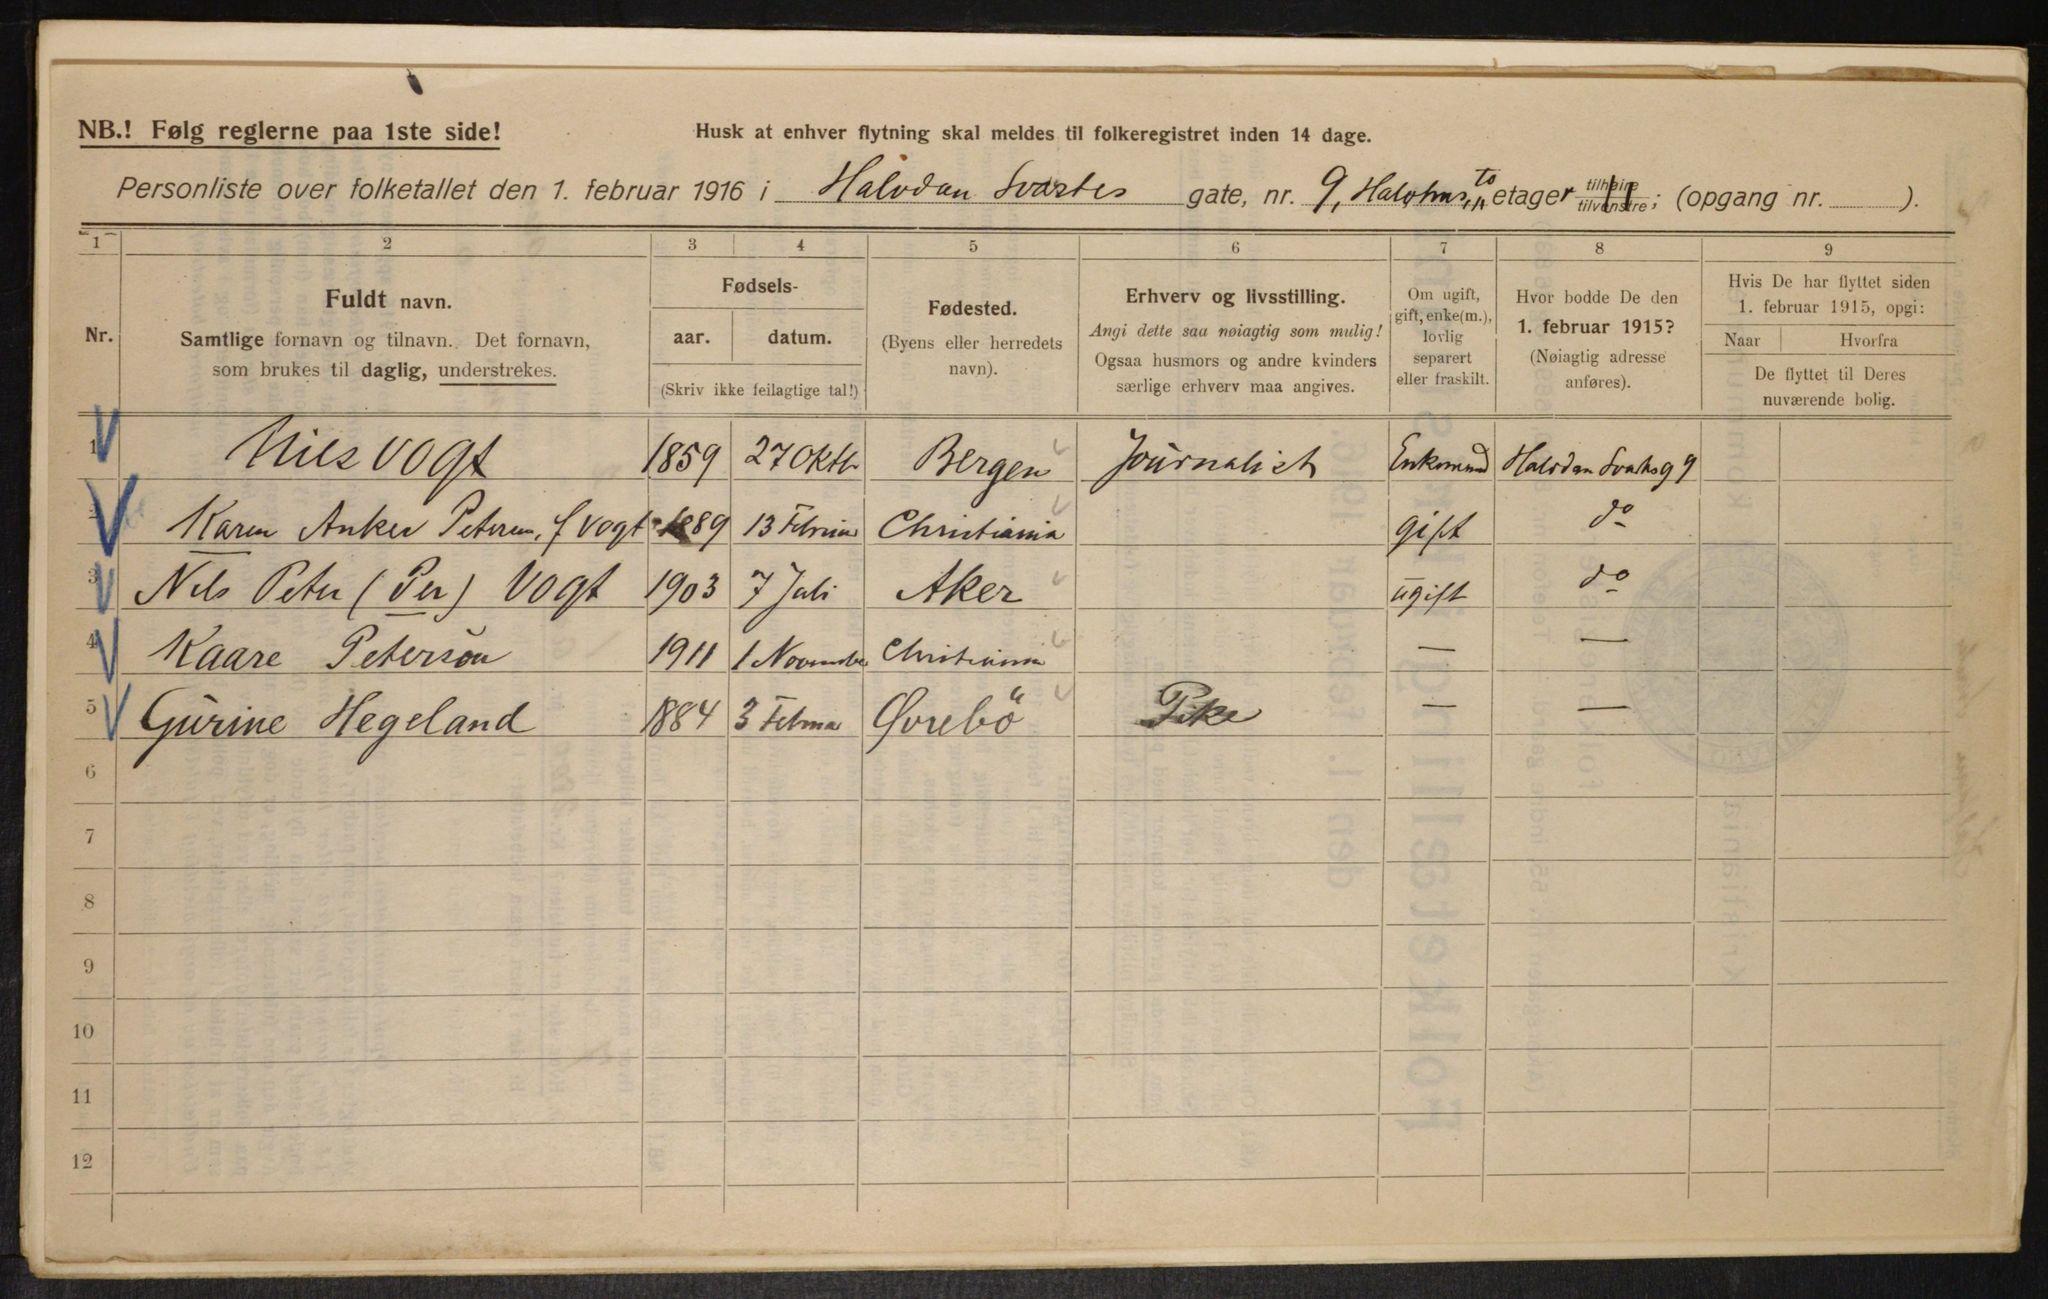 NB.! Følg reglerne paa 1ste side!
Husk at enhver flytning skal meldes til folkeregistret inden 14 dage.
Personliste over folketallet den 1. februar 1916 i Halvdan Svartes gate, nr. 9, to etager tilhøire tilvenstre; (opgang nr. ).
1 2 3 4 5 6 7 8 9
Nr.
Fuldt navn.
Samtlige fornavn og tilnavn. Det fornavn,
som brukes til daglig, understrekes.
Fødsels-
aar. datum.
(Skriv ikke feilagtige tal!)
Fødested.
(Byens eller herredets
navn).
Erhverv og livsstilling.
Angi dette saa nøiagtig som mulig!
Ogsaa husmors og andre kvinders
særlige erhverv maa angives.
Om ugift,
gift, enke(m.),
lovlig
separert
eller fraskilt.
Hvor bodde De den
1. februar 1915?
(Nøiagtig adresse
anføres).
Hvis De har flyttet siden
1. februar 1915, opgi:
Naar Hvorfra
De flyttet til Deres
nuværende bolig.
1 Nils Vogt 1859 27 Oktb Bergen Journalist Enkemand Halvdan Svartes g 9
2 Karen Anker Petersen, f Vogt 1889 13 Februar Christiania gift do
3 Nils Peter (Per) Vogt 1903 7 Juli Aker ugift do
4 Kaare Petersen 1911 1 November Christiania — —
5 Gurine Hegeland 1884 3 Februar Øvrebö Pike — —
6
7
8
9
10
11
12